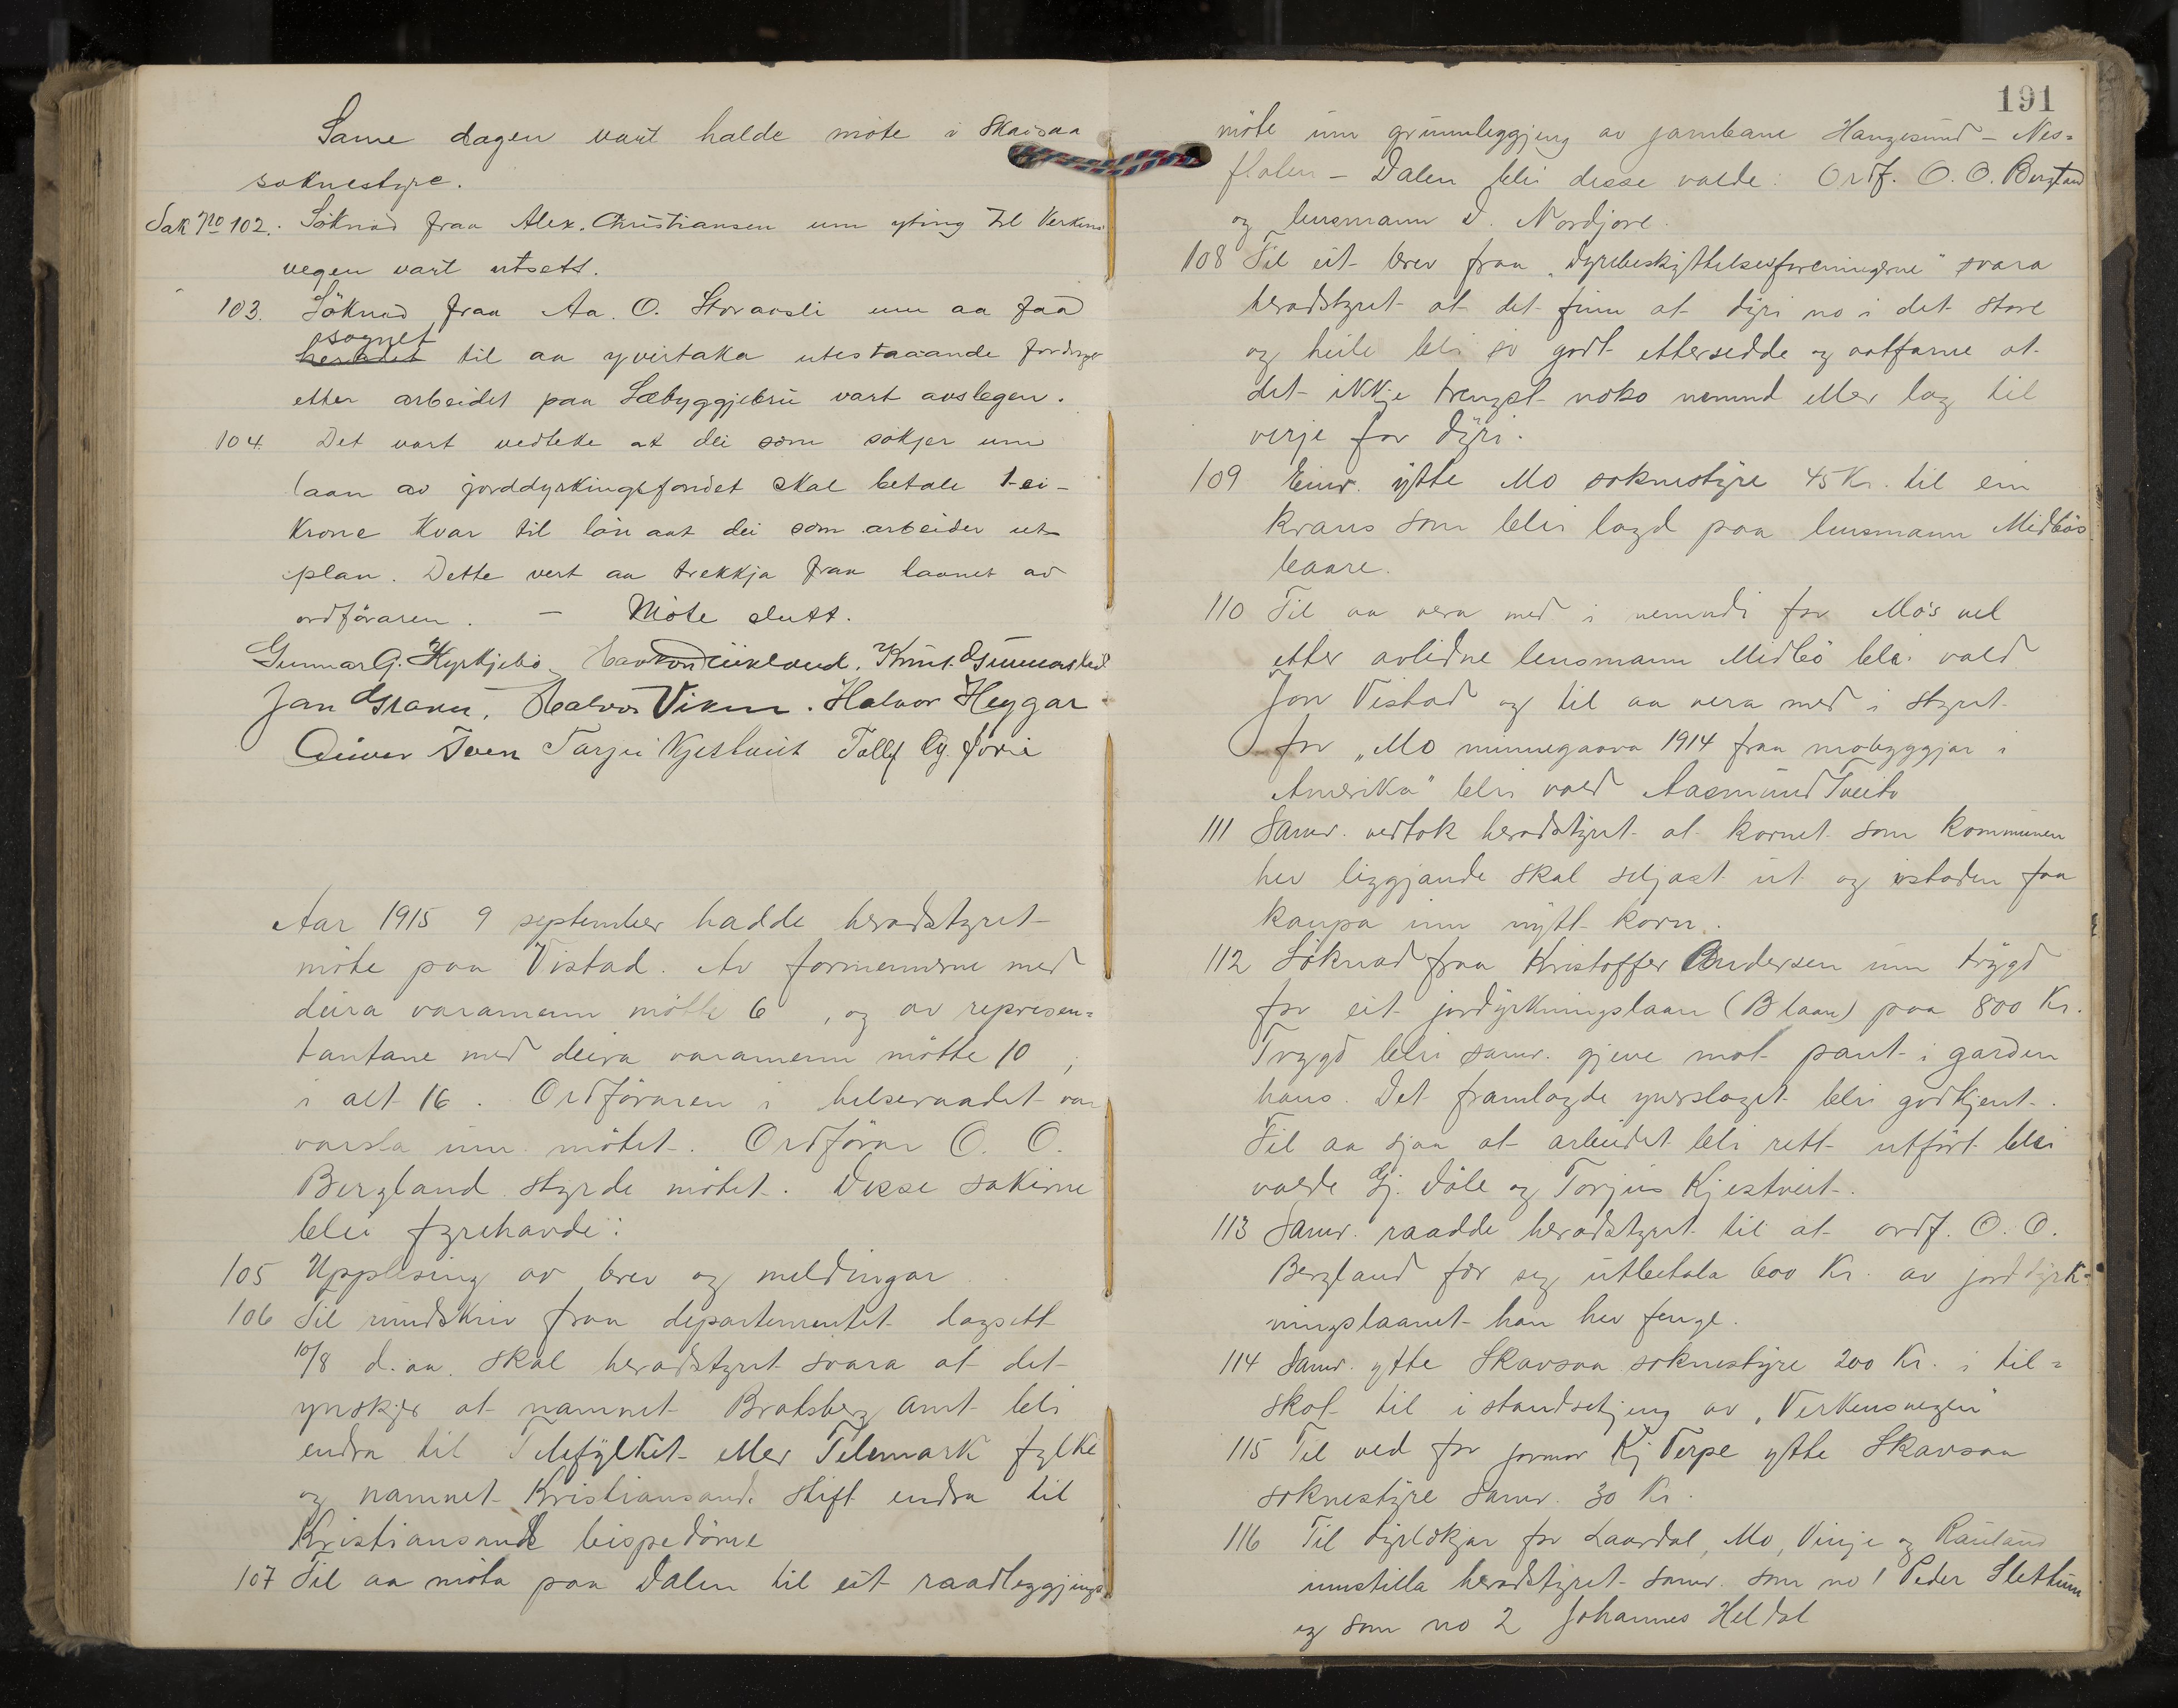 Same dagen vart halde möte i Skavsaa
soknestyre.
Sak No 102. Söknad fraa Alex. Christiansen um yting til Verkens
vegen vart utsett.
103. Söknad fraa Aa. O. Storaasli um aa faa
sognet
heradet til aa yvirtaka utestaaande fordringer
etter arbeidet paa Sæbyggjebru vart avslegen.
104. Det vart vedteke at dei som sökjer um
laan av jorddyrkingsfondet skal betale 1 - ei -
krone kvar til lön aat dei som arbeider ut
plan. Dette vert aa trekkja fraa laanet av
ordföraren. — Möte slutt.
Gunnar G. Kyrkjebö. Haavond Kivleland. Knut Gunnarstad
Jan Gravir. Halvor Viken. Halvor Heggar
Eivin Tveen Tarjei Kjestveit Tallef Gj. Jore
Aar 1915 9 september hadde heradstyret
möte paa Vistad. Av formennerne med
deira varamenn mötte 6, og av represen=
tantane med deira varamenn mötte 10;
i alt 16. Ordföraren i helseraadet var
varsla um mötet. Ordförar O. O.
Bergland styrde mötet. Disse sakirne
blei fyrehavde:
105 Upplesing av brev og meldingar
106 Til rundskriv fraa departementet dagsett
10/8 d. aa. skal heradstyret svara at det
ynskjer at namnet Bratsberg amt bli
endra til Telefylket eller Telemark fylke
og namnet Kristiansands stift endra til
Kristiansands bispedöme
107 Til aa möta paa Dalen til eit raadleggjings-
191
möte um grunnleggjing av jarnbane Haugesund - Nes=
flaten - Dalen blei desse valde: Ordf. O. O. Bergland
og lensmann D. Nordjore.
108 Til eit brev fraa "Dyrebeskyttelsesforeningerne" svara
heradstyret at det finn at dyri no i det store
og heile bli so godt ettersedde og aatfarne at
det ikkje trengst noko nemnd eller lag til
verje for dyri.
109 Einr. ytte Mo soknestyre 45 Kr. til ein
krans som blei lagd paa lensmann Midbös
baare.
110 Til aa vera med i nemndi for Mo's vel
etter avlidne lensmann Midbö blei vald
Jon Vistad og til aa vera med i styret
for "Mo minnegaava 1914 fraa mobyggjar i
Amerika" blei vald Aasmund Tveito
111 Samr. vedtok heradstyret at kornet som kommunen
hev liggjande skal seljast ut og istaden faa
kaupa inn nytt korn.
112 Söknad fraa Kristoffer Andersen um trygd
for eit jordyrkningslaan (B laan) paa 800 Kr.
Trygd blei samr. gjeve mot pant i garden
hans. Det framlagde yverslaget blei godkjent.
Til aa sjaa at arbeidet bli rett utfört blei
valde Gj. Döle og Torjus Kjestveit.
113 Samr. raadde heradstyret til at ordf. O. O.
Bergland fær seg utbetala 600 Kr. av jorddyrk=
ningslaanet han hev fenge.
114 Samr. ytte Skavsaa soknestyre 200 Kr. i til=
skot til i standsetjing av "Verkensvegen"
115 Til ved for jormor Kj Verpe ytte Skavsaa
soknestyre samr. 30 Kr.
116 Til dyrlækjar for Laardal, Mo, Vinje og Rauland
innstilla heradstyret samr. som no 1 Peder Slettum
og som no 2 Johannes Heldal